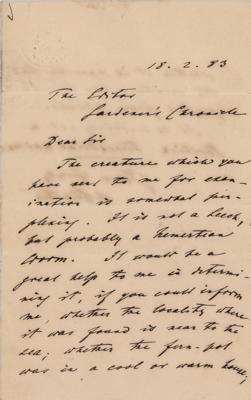 18. 2. 83
The Editor
Gardener's Chronicle
Dear Sir
The creature which you
have sent to me for exa-
mination is somewhat per-
plexing. It is not a leech,
but probably a Nemertian
Worm. It would be a
great help to me in determi-
ning it, if you could inform
me, whether the locality where
it was found is near to the
sea; whether the fern-pot
was in a cool or warm house;